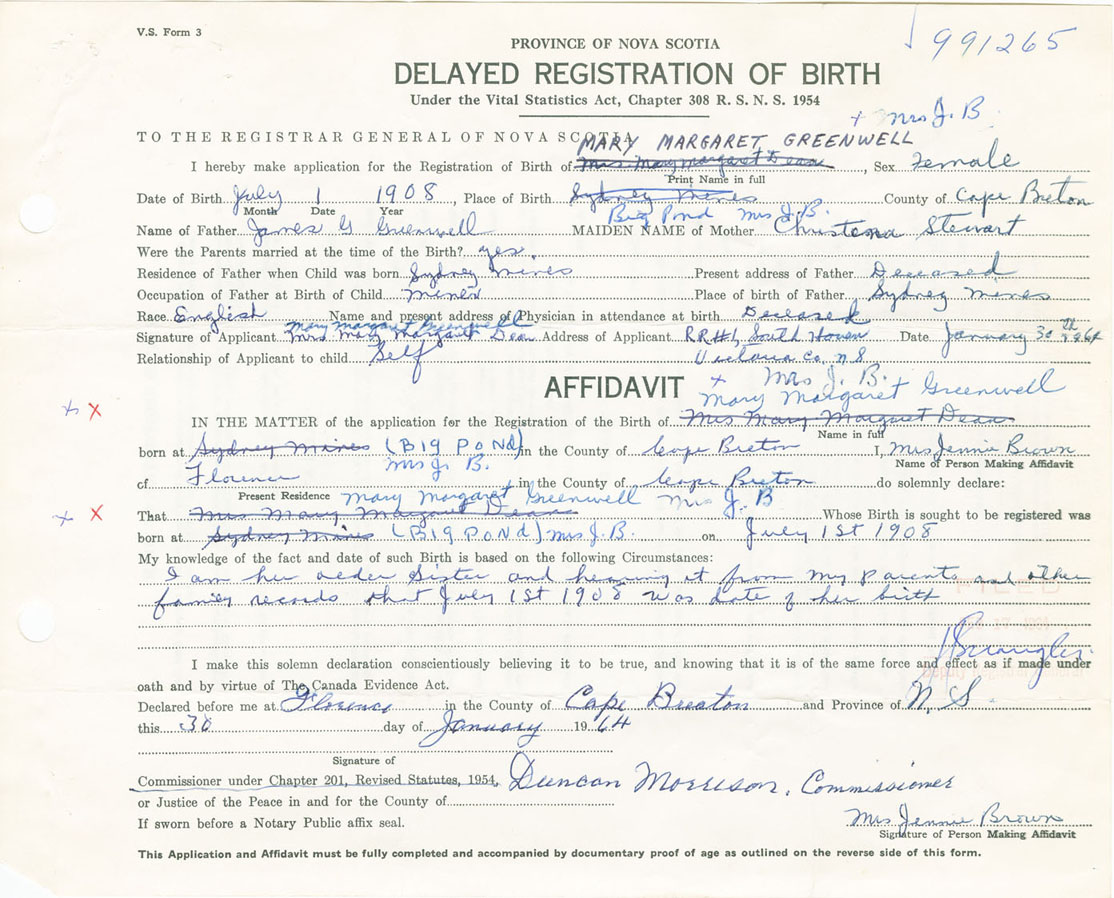 V.S. Form 3
991265
PROVINCE OF NOVA SCOTIA
DELAYED REGISTRATION OF BIRTH
Under the Vital Statistics Act, Chapter 308 R. S. N. S. 1954
+ Mrs J. B
TO THE REGISTRAR GENERAL OF NOVA SCOTIA
MARY MARGARET GREENWELL
I hereby make application for the Registration of Birth of Mrs. Mary Margaret Dean, Sex Female
Print Name in full
Date of Birth July 1 1908, Place of Birth Sydney Mines County of Cape Breton
Month Date Year
Big Pond Mrs J. B.
Name of Father James G Greenwell MAIDEN NAME of Mother Christena Stewart
Were the Parents married at the time of the Birth? yes.
Residence of Father when Child was born Sydney Mines Present address of Father Deceased
Occupation of Father at Birth of Child miner Place of birth of Father Sydney Mines
Race English Name and present address of Physician in attendance at birth Deceased
Mary Margaret Greenwell
Signature of Applicant Mrs Mary Margaret Dean Address of Applicant RR#1, South Haven Date January 30th 1964
Relationship of Applicant to child Self Victoria Co, N S
AFFIDAVIT
+ Mrs J. B.
Mary Margaret Greenwell
+ X
IN THE MATTER of the application for the Registration of the Birth of Mrs Mary Margaret Dean
Name in full
born at Sydney Mines (BIG POND) in the County of Cape Breton I, Mrs Jennie Brown
Name of Person Making Affidavit
Mrs J. B.
of Florence in the County of Cape Breton do solemnly declare:
Present Residence
Mary Margaret Greenwell Mrs J. B
+ X
That Mrs Mary Margaret Dean Whose Birth is sought to be registered was
born at Sydney Mines (BIG POND) Mrs J. B. on July 1st 1908
My knowledge of the fact and date of such Birth is based on the following Circumstances:
I am her older Sister and hearing it from my parents and other
family records that July 1st 1908 was date of her birth
FILED
I make this solemn declaration conscientiously believing it to be true, and knowing that it is of the same force and effect as if made under
Deputy Registrar General
oath and by virtue of The Canada Evidence Act.
Declared before me at Florence in the County of Cape Breton and Province of N. S.
this 30 day of January 1964
Signature of
Commissioner under Chapter 201, Revised Statutes, 1954, Duncan Morrison, Commissioner
or Justice of the Peace in and for the County of
If sworn before a Notary Public affix seal.
Mrs Jennie Brown
Signature of Person Making Affidavit
This Application and Affidavit must be fully completed and accompanied by documentary proof of age as outlined on the reverse side of this form.